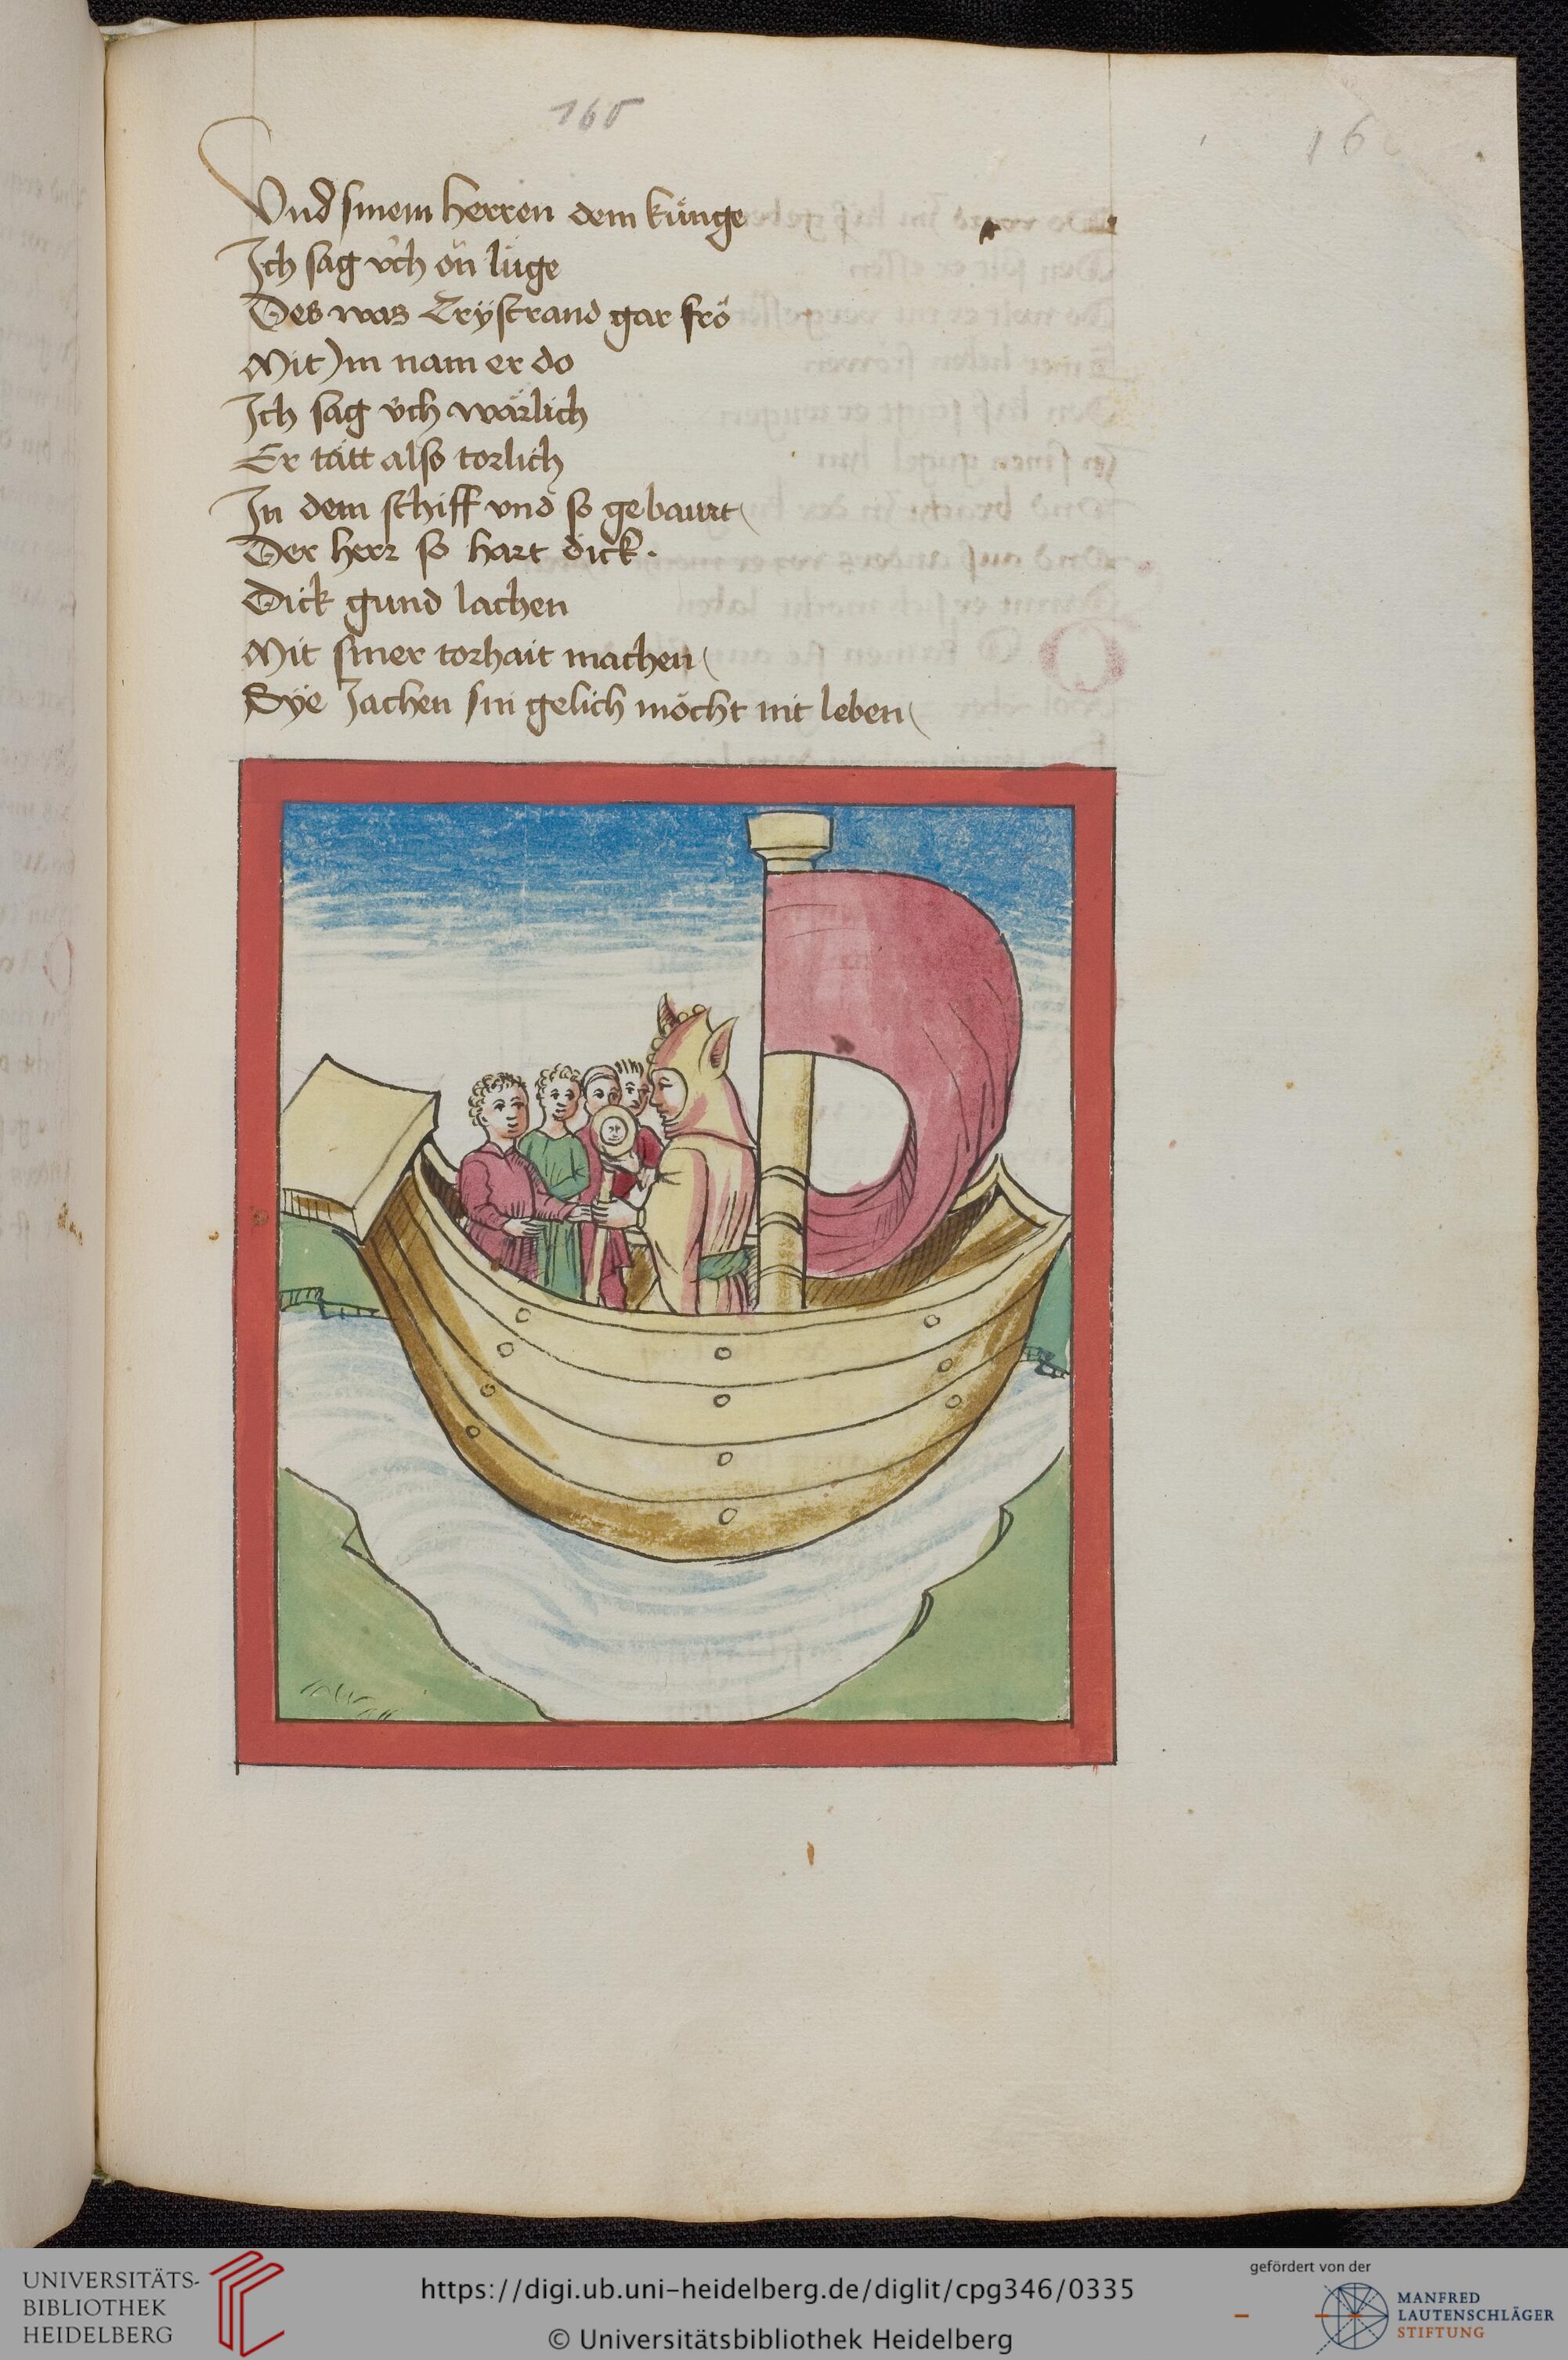 165
16
Vnd sinem herren dem künge
Ich sag v́ch on luge
Des was Trÿstrand gar fro
Mit Im nam er do
Ich sag v́ch wärlich
Er tätt also torlich
In dem schiff vnd so gebaurt
Der herr so hart dick.
Dick gund lachen
Mit siner torhait machen
Die sachen sin gelich möcht nit leben
UNIVERSITÄTS-
BIBLIOTHEK
HEIDELBERG
https://digi.ub.uni-heidelberg.de/diglit/cpg346/0335
© Universitätsbibliothek Heidelberg
gefördert von der
MANFRED
LAUTENSCHLÄGER
STIFTUNG